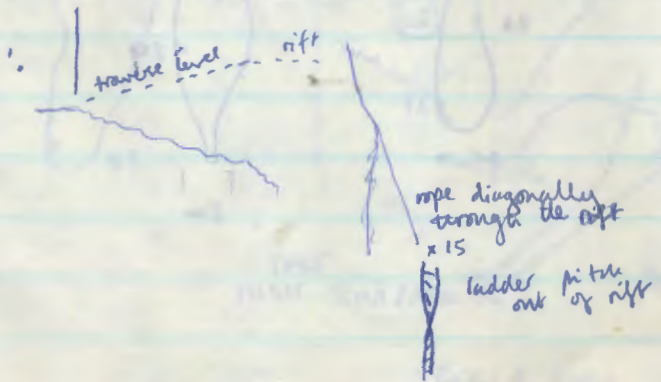 traverse level
rift
rope diagonally
through the rift
x 15
ladder pitch
out of rift